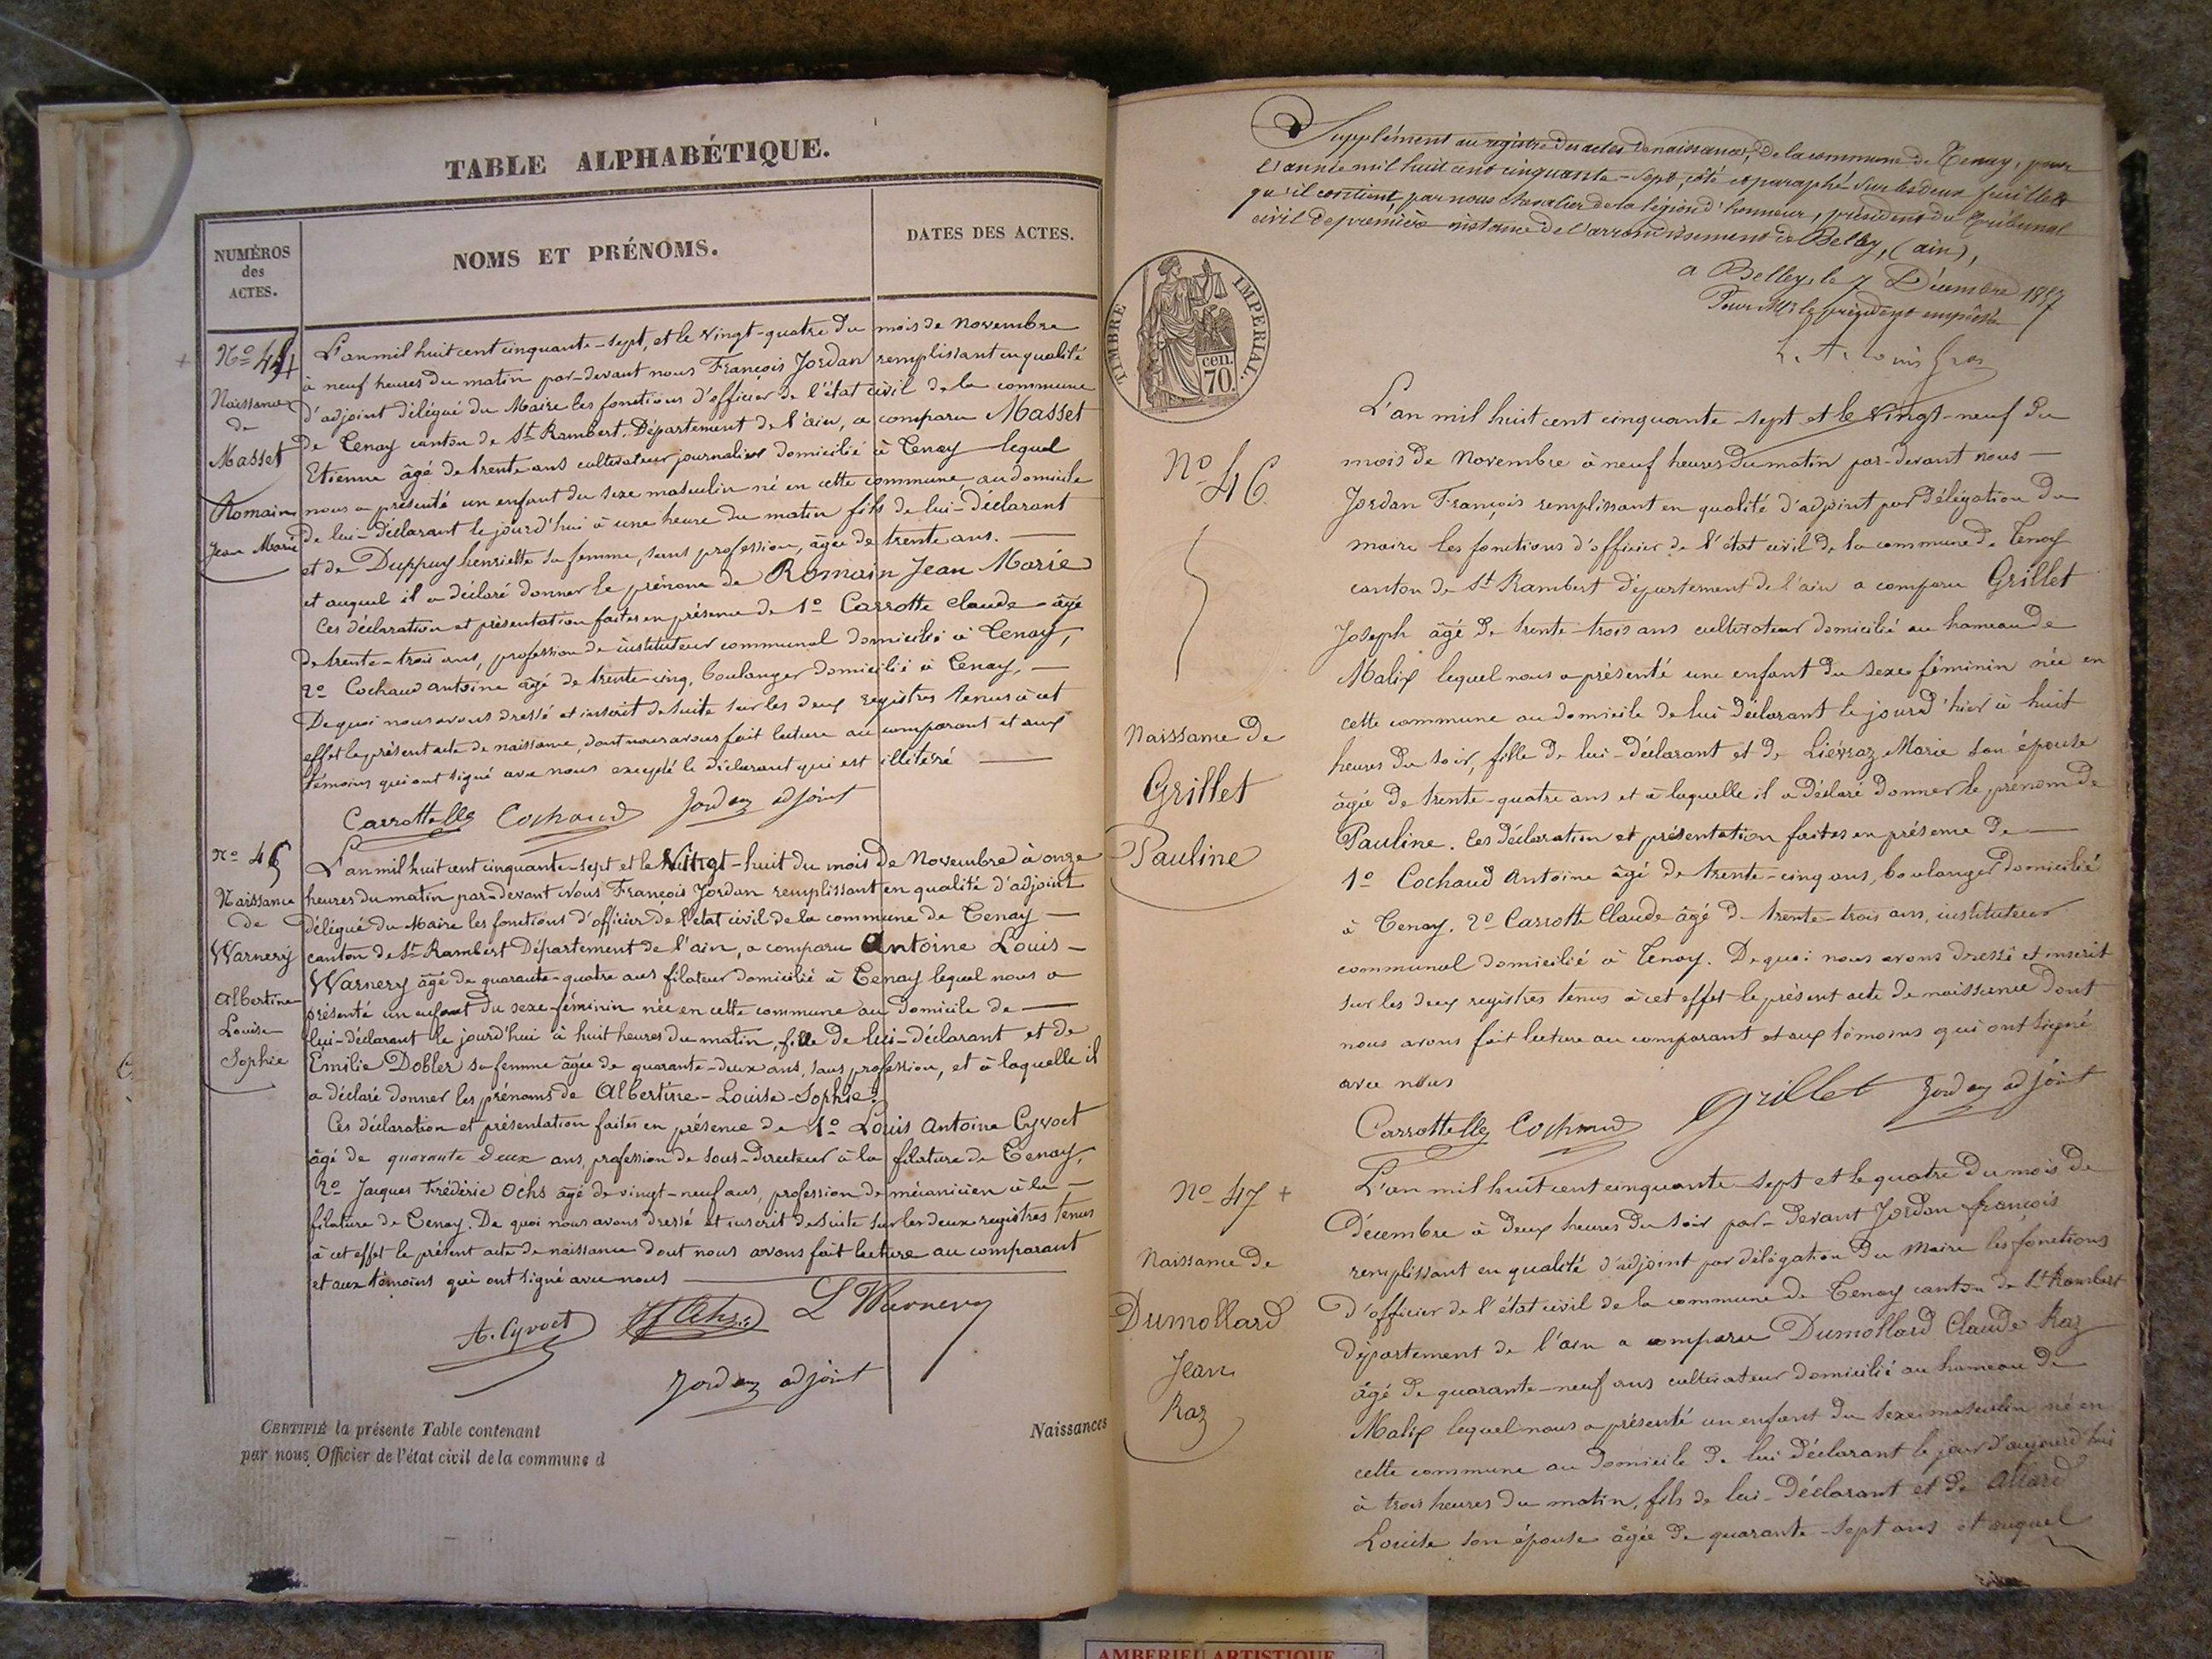 TABLE ALPHABÉTIQUE.
NUMÉROS
des
ACTES.
NOMS ET PRÉNOMS.
DATES DES ACTES.
No 44
Naissance
de
Masset
Romain
Jean Marie
L'an mil huit cent cinquante-sept, et le vingt-quatre du mois de Novembre
à neuf heures du matin par-devant nous François Jordan remplissant en qualité
d'adjoint délégué du Maire les fonctions d'officier de l'état civil de la commune
de Tenay canton de St Rambert. Département de l'ain, a comparu Masset
Etienne âgé de trente ans cultivateur journalier domicilié à Tenay lequel
nous a présenté un enfant du sexe masculin né en cette commune au domicile
de lui-déclarant le jourd'hui à une heure du matin fils de lui-déclarant
et de Duppuy henriette sa femme, sans profession, âgée de trente ans. —
et auquel il a déclaré donner le prénom de Romain Jean Marie
Ces déclaration et présentation faites en présence de 1o Carrotte Claude âgé
de trente-trois ans, profession de instituteur communal domicilié à Tenay,
2o Cochaud antoine âgé de trente-cinq, boulanger domicilié à Tenay, —
De quoi nous avons dressé et inscrit de suite sur les deux registres tenus à cet
effet le présent acte de naissance, dont nous avons fait lecture au comparant et aux
témoins qui ont signé avec nous excepté le déclarant qui est illitéré —
Carrotte Cochaud Jordan adjoint
No 45
Naissance
de
Warnery
Albertine
Louise
Sophie
L'an mil huit cent cinquante-sept et le Vingt-huit du mois de Novembre à onze
heures du matin par-devant Nous François Jordan remplissant en qualité d'adjoint
délégué du Maire les fonctions d'officier de l'état civil de la commune de Tenay —
canton de St Rambert Département de l'ain, a comparu Antoine Louis —
Warnery âgé de quarante-quatre ans filateur domicilié à Tenay lequel nous a
présenté un enfant du sexe féminin née en cette commune au domicile de —
lui-déclarant le jourd'hui à huit heures du matin, fille de lui-déclarant et de
Emilie Dobler sa femme âgée de quarante-deux ans, sans profession, et à laquelle il
a déclaré donner les prénoms de Albertine-Louise-Sophie.
Ces déclaration et présentation faites en présence de 1o Louis Antoine Cyvoct
âgé de quarante deux ans, profession de sous-Directeur à la filature de Tenay,
2o Jaques Frédéric Ochs âgé de vingt-neuf ans, profession de mécanicien à la —
filature de Tenay. De quoi nous avons dressé et inscrit de suite sur les deux registres tenus
à cet effet le présent acte de naissance dont nous avons fait lecture au comparant
et aux témoins qui ont signé avec nous —
A. Cyvoct Ochs L Warnery
Jordan adjoint
CERTIFIÉ la présente Table contenant
Naissances
par nous, Officier de l'état civil de la commune d
Supplément au registre des actes de naissances, de la commune de Tenay, pour
l'année mil huit cent cinquante-sept, coté et paraphé sur les deux feuillets
qu'il contient, par nous chevalier de la légion d'honneur, président du tribunal
civil de première instance de l'arrondissement de Belley, (ain),
a Belley, le 7 Décembre 1857
Pour Mr le président empêché
TIMBRE IMPÉRIAL.
cen.
70.
No 46
Naissance de
Grillet
Pauline
L'an mil huit cent cinquante-sept et le Vingt-neuf du
mois de Novembre à neuf heures du matin par-devant nous —
Jordan François remplissant en qualité d'adjoint par délégation du
maire les fonctions d'officier de l'état civil de la commune de Tenay
canton de St Rambert département de l'ain a comparu Grillet
Joseph âgé de trente-trois ans cultivateur domicilié au hameau de
Malix lequel nous a présenté une enfant du sexe féminin née en
cette commune au domicile de lui déclarant le jourd'hier à huit
heures du soir, fille de lui-déclarant et de Liévraz Marie son épouse
âgée de trente-quatre ans et à laquelle il a déclaré donner le prénom de
Pauline. Ces déclaration et présentation faites en présence de —
1o Cochaud Antoine âgé de trente-cinq ans, boulanger domicilié
à Tenay. 2o Carrotte Claude âgé de trente-trois ans, instituteur
communal domicilié à Tenay. De quoi nous avons dressé et inscrit
sur les deux registres tenus à cet effet le présent acte de naissance dont
nous avons fait lecture au comparant et aux témoins qui ont signé
avec nous
Carrotte Cochaud Grillet Jordan adjoint
No 47 +
Naissance de
Dumollard
Jean
Raz
L'an mil huit cent cinquante-sept et le quatre du mois de
Décembre à deux heures du soir par-devant Jordan françois
remplissant en qualité d'adjoint par délégation du Maire les fonctions
d'officier de l'état civil de la commune de Tenay canton de St Rambert
département de l'ain a comparu Dumollard Claude Raz
âgé de quarante-neuf ans cultivateur domicilié au hameau de
Malix lequel nous a présenté un enfant du sexe masculin né en
cette commune au domicile de lui déclarant le jour d'aujourd'hui
à trois heures du matin, fils de lui-déclarant et de Allard
Louise son épouse âgée de quarante-sept ans et auquel
AMBERIEU ARTISTIQUE